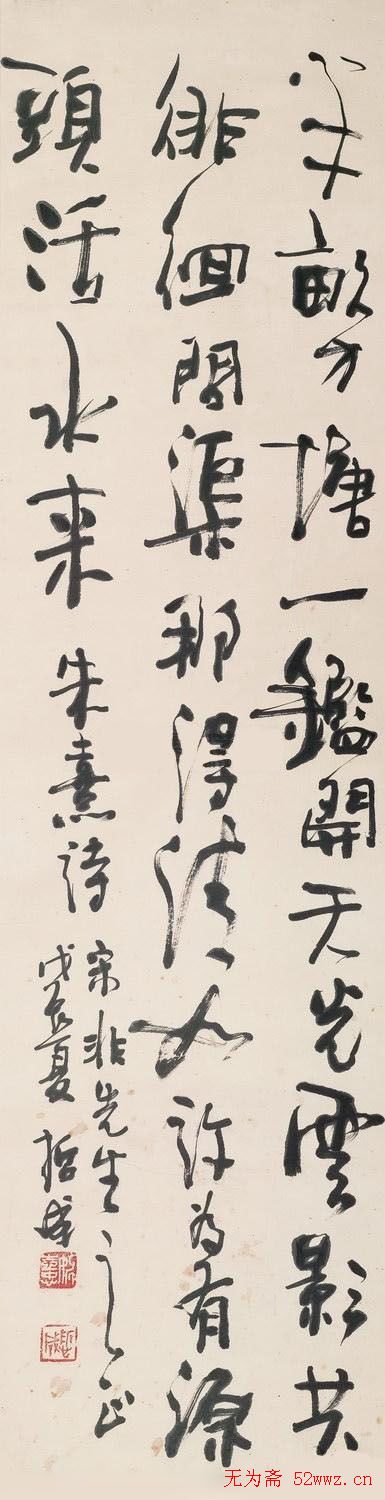 半畝方塘一鑑開天光雲影共
徘徊問渠那得清如許為有源
頭活水来 朱熹詩
非先生之正
戊辰夏 哲成
无为斋 52wwz.cn